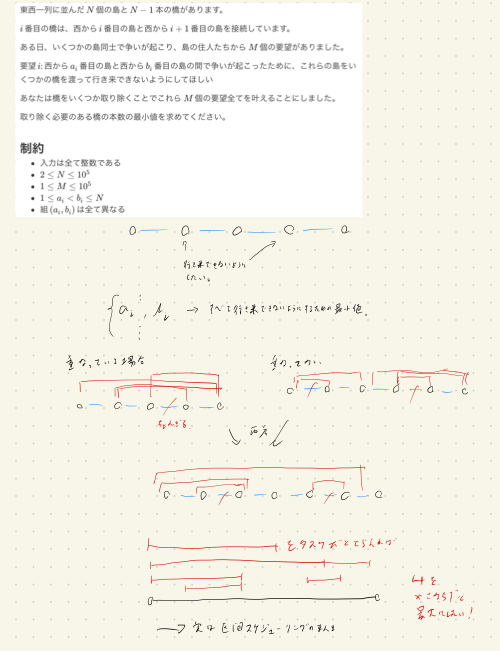 東西一列に並んだ N 個の島と N − 1 本の橋があります。
i 番目の橋は、西から i 番目の島と西から i + 1 番目の島を接続しています。
ある日、いくつかの島同士で争いが起こり、島の住人たちから M 個の要望がありました。
要望 i: 西から a_i 番目の島と西から b_i 番目の島の間で争いが起こったために、これらの島をい
くつかの橋を渡って行き来できないようにしてほしい
あなたは橋をいくつか取り除くことでこれら M 個の要望全てを叶えることにしました。
取り除く必要のある橋の本数の最小値を求めてください。
制約
• 入力は全て整数である
• 2 ≤ N ≤ 10^5
• 1 ≤ M ≤ 10^5
• 1 ≤ a_i < b_i ≤ N
• 組 (a_i, b_i) は全て異なる
行き来できないように
したい。
a_i, b_i → すべて行き来できないようにするための最小値。
重なっている場合
重なってない
両方
をタスクだととらえれば
→ 実は区間スケジューリングのまんま
最大にしたい!